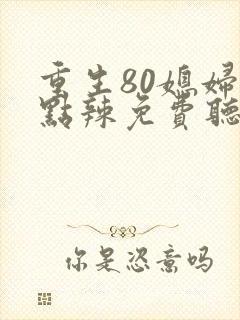 重生80媳婦
點辣免費聽
你是恣意吗